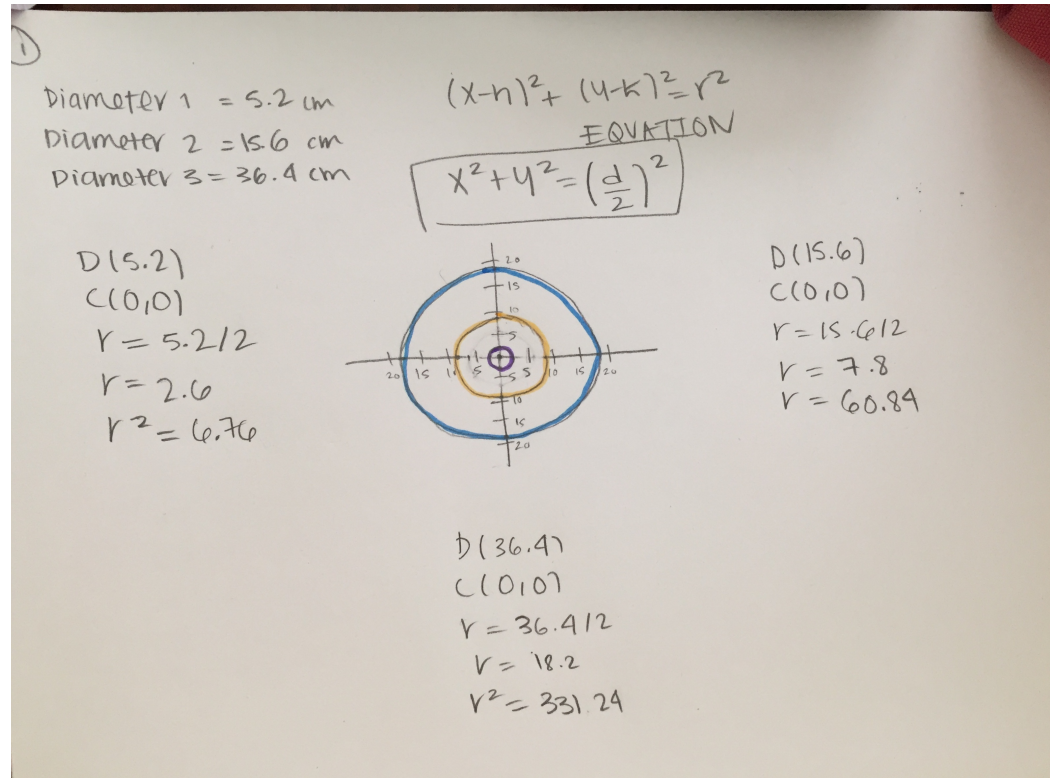 1
Diameter 1 = 5.2 cm
Diameter 2 = 15.6 cm
Diameter 3 = 36.4 cm
(x-h)²+ (y-k)²=r²
EQUATION
x²+y²=(d/2)²
D(5.2)
C(0,0)
r = 5.2/2
r = 2.6
r² = 6.76
20
15
10
5
20 15 10 5 5 10 15 20
5
10
15
20
D(15.6)
C(0,0)
r = 15.6/2
r = 7.8
r = 60.84
D(36.4)
C(0,0)
r = 36.4/2
r = 18.2
r² = 331.24